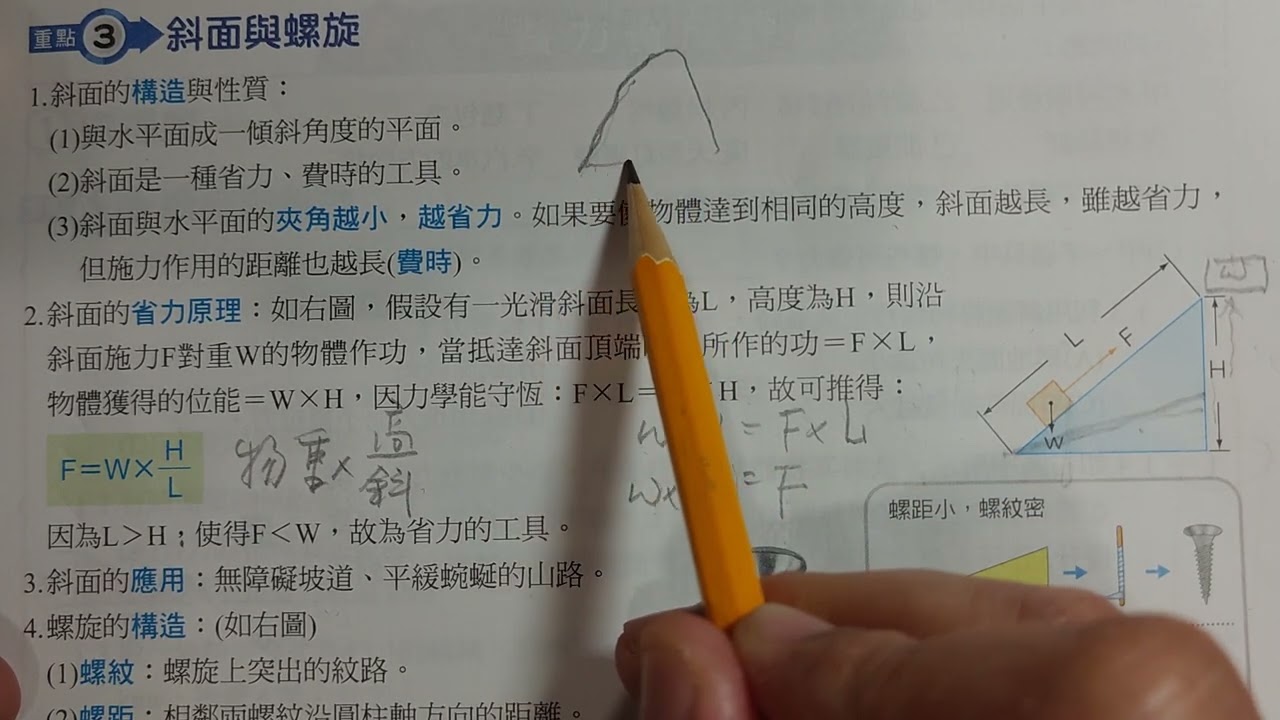 重點 3 斜面與螺旋
1.斜面的構造與性質：
(1)與水平面成一傾斜角度的平面。
(2)斜面是一種省力、費時的工具。
(3)斜面與水平面的夾角越小，越省力。如果要 物體達到相同的高度，斜面越長，雖越省力，
但施力作用的距離也越長(費時)。
2.斜面的省力原理：如右圖，假設有一光滑斜面長 為L，高度為H，則沿
斜面施力F對重W的物體作功，當抵達斜面頂端 所作的功＝F×L，
物體獲得的位能＝W×H，因力學能守恆：F×L＝ H，故可推得：
F=W×H/L
物重×高/斜
= F×L
W× = F
因為L＞H；使得F＜W，故為省力的工具。
3.斜面的應用：無障礙坡道、平緩蜿蜒的山路。
4.螺旋的構造：(如右圖)
(1)螺紋：螺旋上突出的紋路。
(2)螺距：相鄰兩螺紋沿圓柱軸方向的距離。
W
L
F
H
W
螺距小，螺紋密